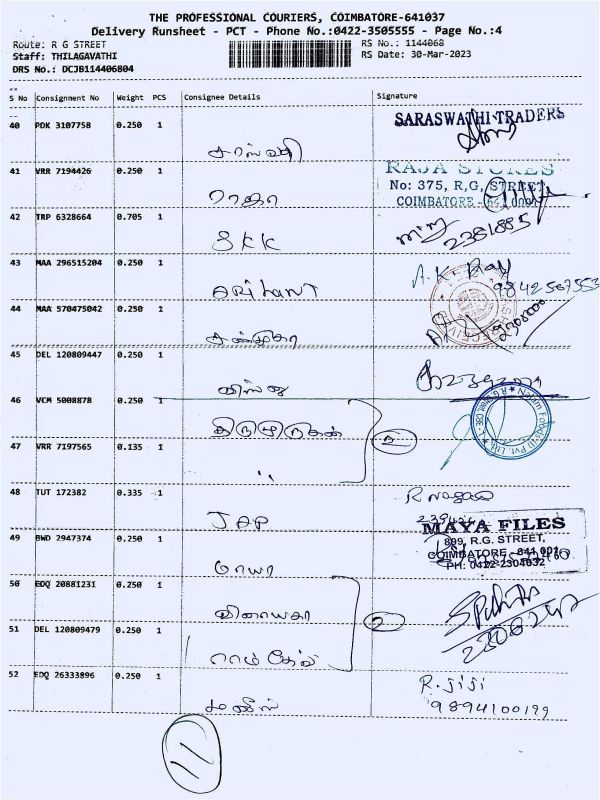 THE PROFESSIONAL COURIERS, COIMBATORE-641037
Delivery Runsheet - PCT - Phone No.:0422-3505555 - Page No.:4
Route: R G STREET RS No.: 1144068
Staff: THILAGAVATHI RS Date: 30-Mar-2023
DRS No.: DCJB114406804
S No Consignment No Weight PCS Consignee Details Signature
40 PDK 3107758 0.250 1 SARASWATHI TRADERS
41 VRR 7194426 0.250 1 RAJA STORES
No: 375, R.G, STREET,
ராஜா COIMBATORE - 641 001
42 TRP 6328664 0.705 1
SKK 2381885
43 MAA 296515204 0.250 1 A.K. Raj
ARIHANT 9842507553
44 MAA 570475042 0.250 1
45 DEL 120809447 0.250 1
46 VCM 5008878 0.250 1
திருமுருகன் 2
47 VRR 7197565 0.135 1
"
48 TUT 172382 0.335 1
JAP
49 BWD 2947374 0.250 1 MAYA FILES
899, R.G. STREET,
COIMBATORE - 641 001
மாயா PH: 0422-2304032
50 EDQ 20881231 0.250 1
விநாயகா 2
51 DEL 120809479 0.250 1
52 EDQ 26333896 0.250 1 R. JiJi
9894100199
11